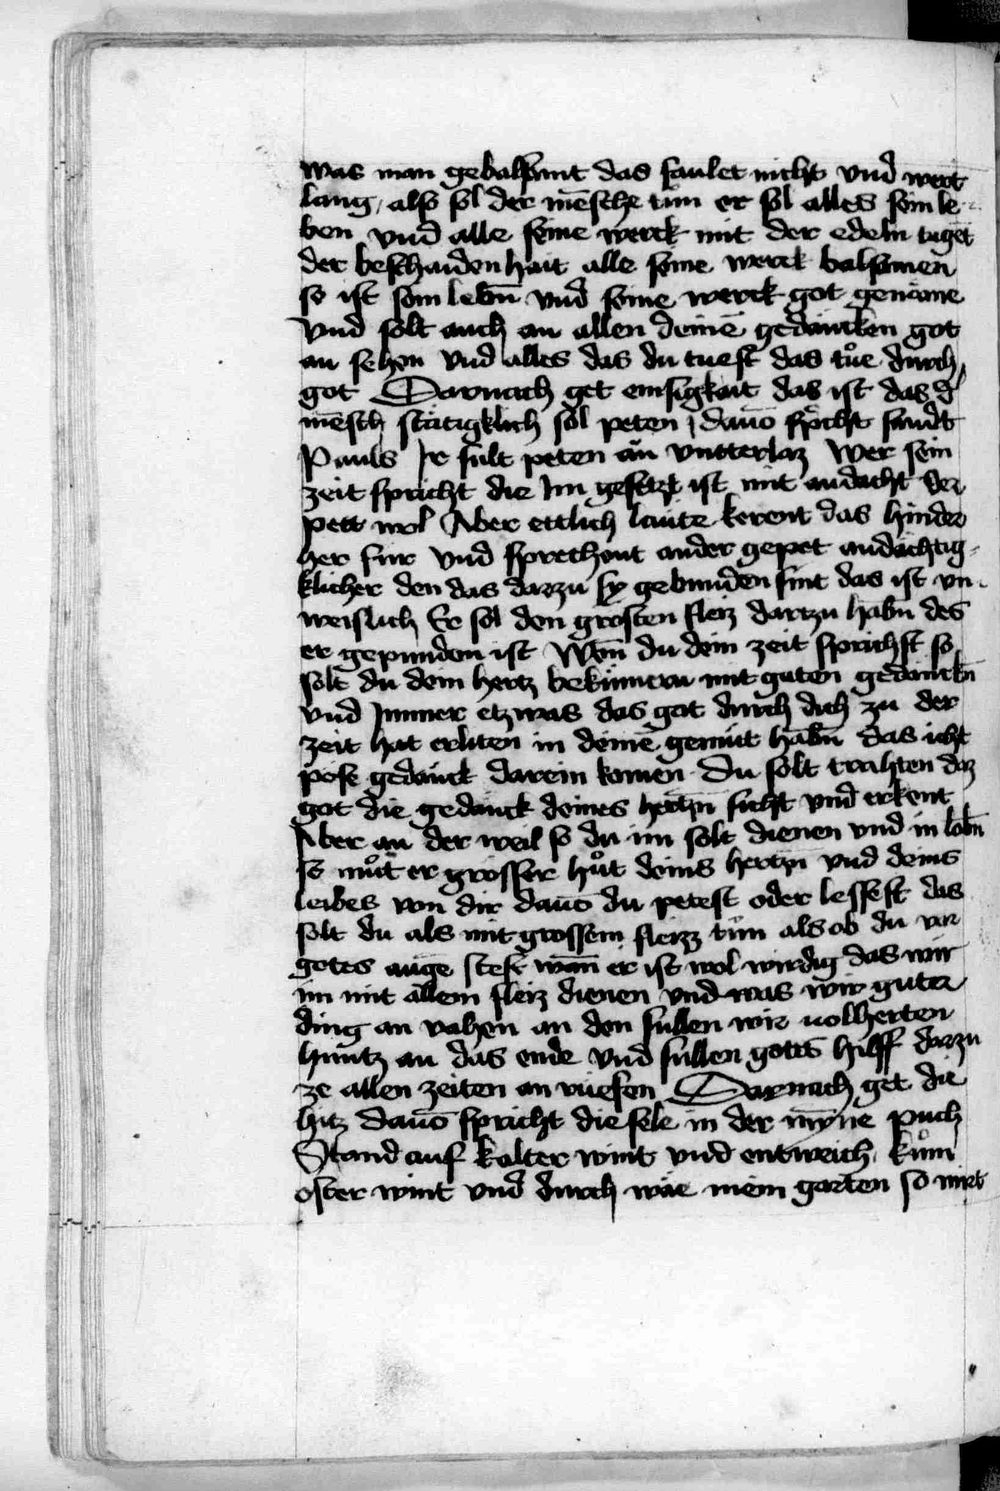 was man gebalsamt das faulet nicht vnd wert
lang / also sol der mēsche tun er sol alles sein le-
ben vnd alle seine werck mit der edeln tugēt
der beschaidenhait alle seine werck balsamen
so ist sein lebn̄ vnd seine werck got genäme
vnd solt auch an allen deinē gedäncken got
an sehen vnd alles das du tuest das tůe durch
got Darnach get emsigkait das ist das d'
mēsch stätigklich sol peten / dauō spricht sandt
Pauls Ir sült peten an vntterlaz Wer sein
zeit spricht die Im gesetzt ist mit andacht der
pett wol Aber ettlich läute kerent das hinder
her für vnd sprechent ander gepet andächtig-
klicher den das darzu sy gebunden sint das ist vn-
weislich Er sol den grosten fleiz dartzu habn des
er gepunden ist Wen̄ du dein zeit sprichst so
solt du dein hertz bekümern mit guten gedänckn̄
vnd Immer etzwas das got durch dich zu der
zeit hat erliten in deinē gemüt habn̄ das icht
pöse gedänck darein komen Du solt trahten daz
got die gedänck deines hertzn̄ sicht vnd erkent
Aber an der weil so du im solt dienen vnd in lobn̄
so můt er grosser hůt deins hertzn̄ vnd deins
leibes von dir dauō du petest oder lessest das
solt du als mit grossem fleizz tůn als ob du vor
gotes auge stest wan̄ er ist wol wirdig das wir
im mit allem fleiz dienen vnd was wir guter
ding an vahen an den süllen wir uolherten
huntz an das ende vnd süllen gotes hilff darzu
ze allen zeiten an rüefen Darnach get die
hitz dauō spricht die sele in der myne puch
Stand auf kalter wint vnd entweich / kům
oster wint vnd durch wäe mein garten so wirt